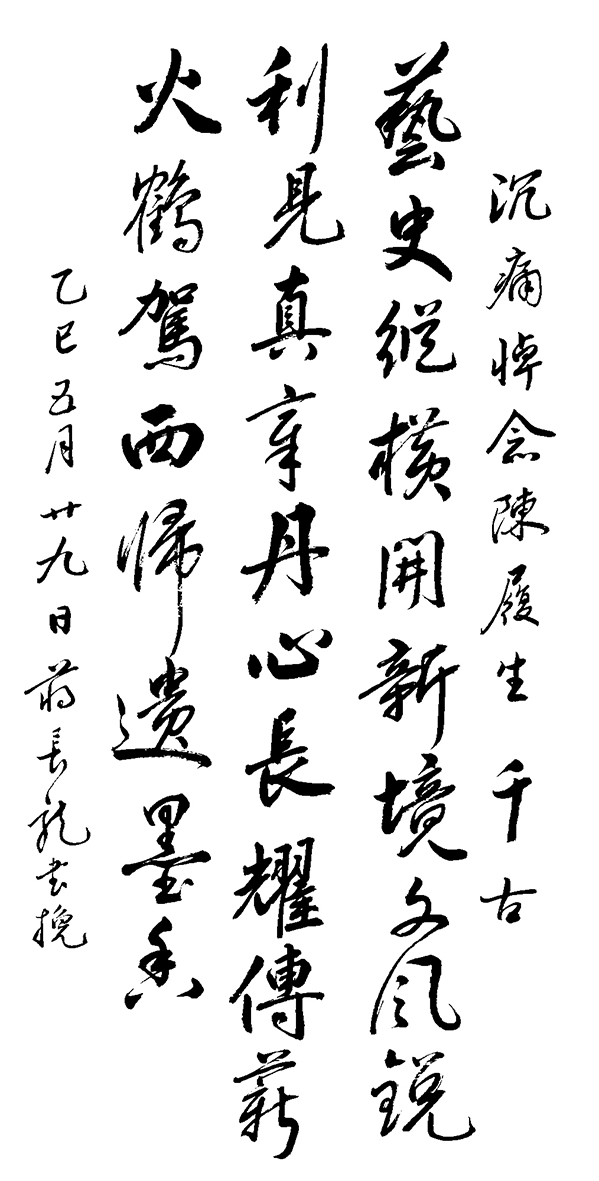 沉痛悼念陳履生千古
藝史縱橫開新境文风銳
利見真章丹心長耀傳薪
火鶴駕西歸遺墨香
乙巳五月廿九日蔣長龍書挽